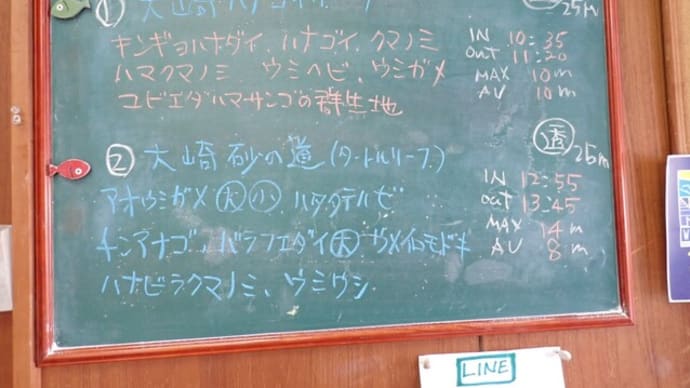 ① 大崎ハナゴイリーフ 25m
キンギョハナダイ、ハナゴイ、クマノミ
ハマクマノミ ウミヘビ、ウミガメ
ユビエダハマサンゴの群生地
IN 10:35
out 11:20
MAX 10m
AV 10m
② 大崎 砂の道(タートルリーフ) 透 25m
アオウミガメ 大 小 ハタタテハゼ
チンアナゴ、バラフエダイ 大 ウメイロモドキ
ハナビラクマノミ、ウミウシ
IN 12:55
out 13:45
MAX 14m
AV 8m
LINE